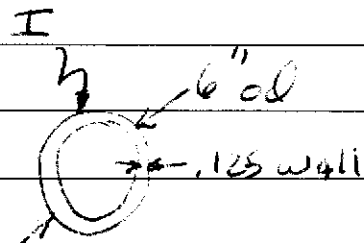 I
6" od
.125 wall